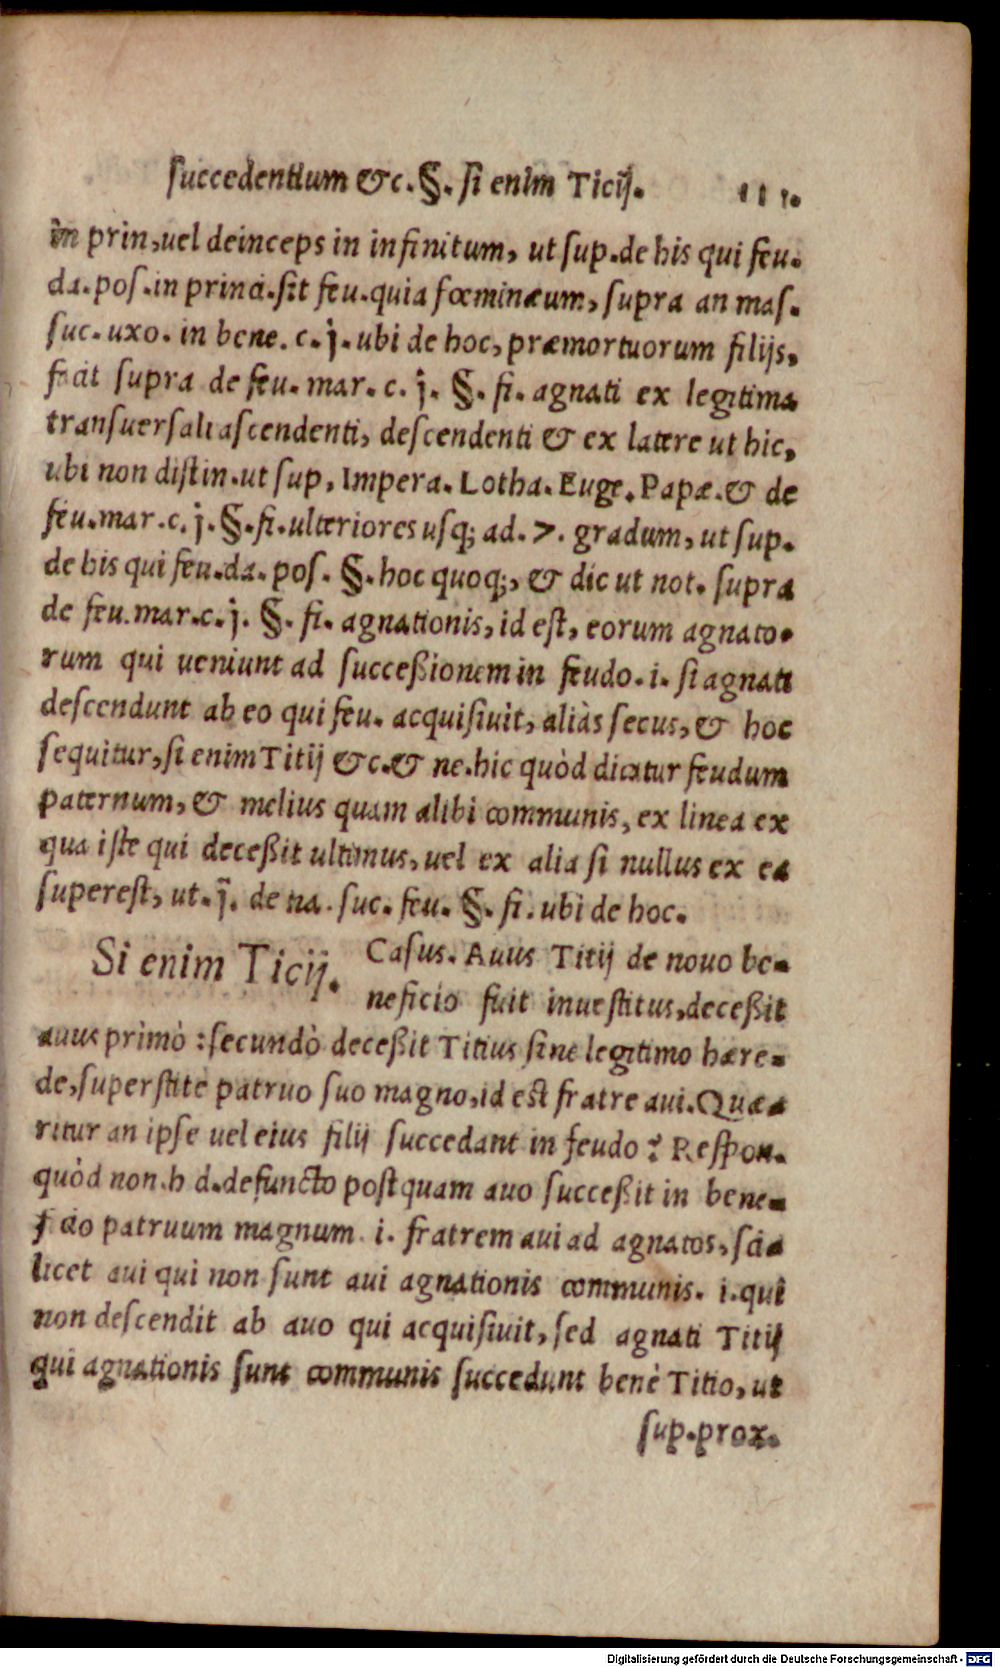 ſuccedentium &c. §. ſi enim Ticij. 111.
in prin, uel deinceps in infinitum, ut ſup. de his qui feu.
da. poſ. in princi. ſit feu. quia fœmineum, ſupra an maſ.
ſuc. uxo. in bene. c. j. ubi de hoc, præmortuorum filijs,
facit ſupra de feu. mar. c. j. §. fi. agnati ex legitima
tranſuerſali aſcendenti, deſcendenti & ex latere ut hic,
ubi non diſtin. ut ſup, Impera. Lotha. Euge. Papæ. & de
feu. mar. c. j. §. fi. ulteriores uſq; ad. 7. gradum, ut ſup.
de his qui feu. da. poſ. §. hoc quoq;, & dic ut not. ſupra
de feu. mar. c. j. §. fi. agnationis, id eſt, eorum agnato-
rum qui ueniunt ad ſucceßionem in feudo. i. ſi agnati
deſcendunt ab eo qui feu. acquiſiuit, aliàs ſecus, & hoc
ſequitur, ſi enim Titij &c. & ne. hic quòd dicatur feudum
paternum, & melius quam alibi communis, ex linea ex
qua iſte qui deceßit ultimus, uel ex alia ſi nullus ex ea
ſupereſt, ut. j. de na. ſuc. feu. §. fi. ubi de hoc.
Si enim Ticij. Caſus. Auus Titij de nouo be-
neficio fuit inueſtitus, deceßit
auus primò: ſecundò deceßit Titius ſine legitimo hære-
de, ſuperſtite patruo ſuo magno, id eſt fratre aui. Quæ-
ritur an ipſe uel eius filij ſuccedant in feudo? Reſpon.
quòd non. h d. defuncto poſtquam auo ſucceßit in bene-
ficio patruum magnum i. fratrem aui ad agnatos, ſci-
licet aui qui non ſunt aui agnationis communis. i. qui
non deſcendit ab auo qui acquiſiuit, ſed agnati Titij
qui agnationis ſunt communis ſuccedunt benè Titio, ut
ſup. prox.
Digitalisierung gefördert durch die Deutsche Forschungsgemeinschaft - DFG